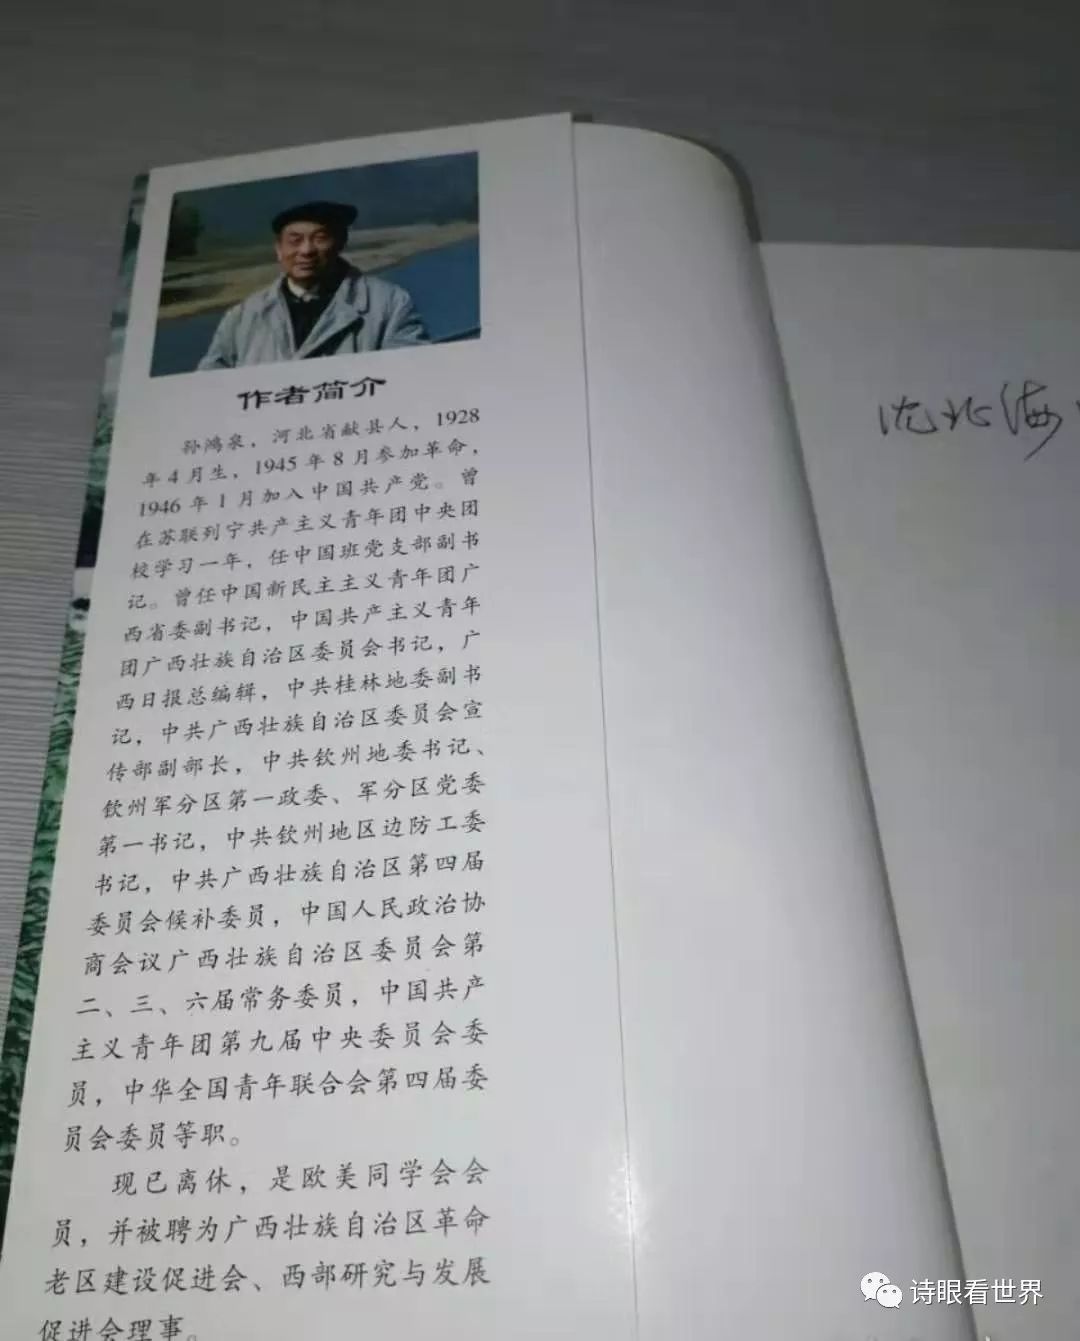 作者简介
孙鸿泉，河北省献县人，1928
年4月生，1945年8月参加革命，
1946年1月加入中国共产党。曾
在苏联列宁共产主义青年团中央团
校学习一年，任中国班党支部副书
记。曾任中国新民主主义青年团广
西省委副书记，中国共产主义青年
团广西壮族自治区委员会书记，广
西日报总编辑，中共桂林地委副书
记，中共广西壮族自治区委员会宣
传部副部长，中共钦州地委书记、
钦州军分区第一政委、军分区党委
第一书记，中共钦州地区边防工委
书记，中共广西壮族自治区第四届
委员会候补委员，中国人民政治协
商会议广西壮族自治区委员会第
二、三、六届常务委员，中国共产
主义青年团第九届中央委员会委
员，中华全国青年联合会第四届委
员会委员等职。
现已离休，是欧美同学会会
员，并被聘为广西壮族自治区革命
老区建设促进会、西部研究与发展
促进会理事。
沈北海
诗眼看世界